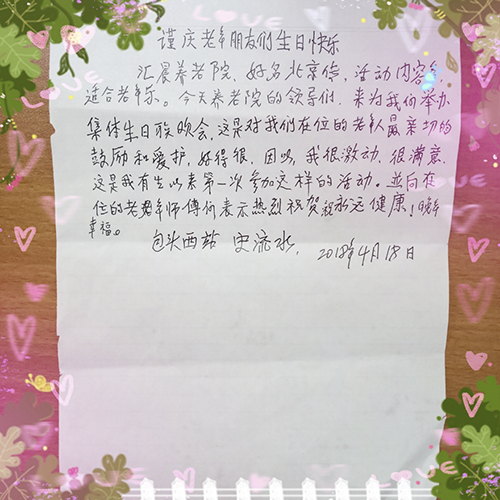 谨庆老年朋友们生日快乐
汇晨养老院、好名北京传,活动内容多
适合老年乐。今天养老院的领导们,来为我们举办
集体生日联欢晚会,这是对我们在位的老年人最亲切的
鼓励和爱护,好得很,因此,我很激动,很满意,
这是我有生以来第一次参加这样的活动。並向在
位的老年师傅们表示热烈祝贺祝永远健康!晚年
幸福。
包头西站 史流水,
2018年4月18日
LOVE
LOVE